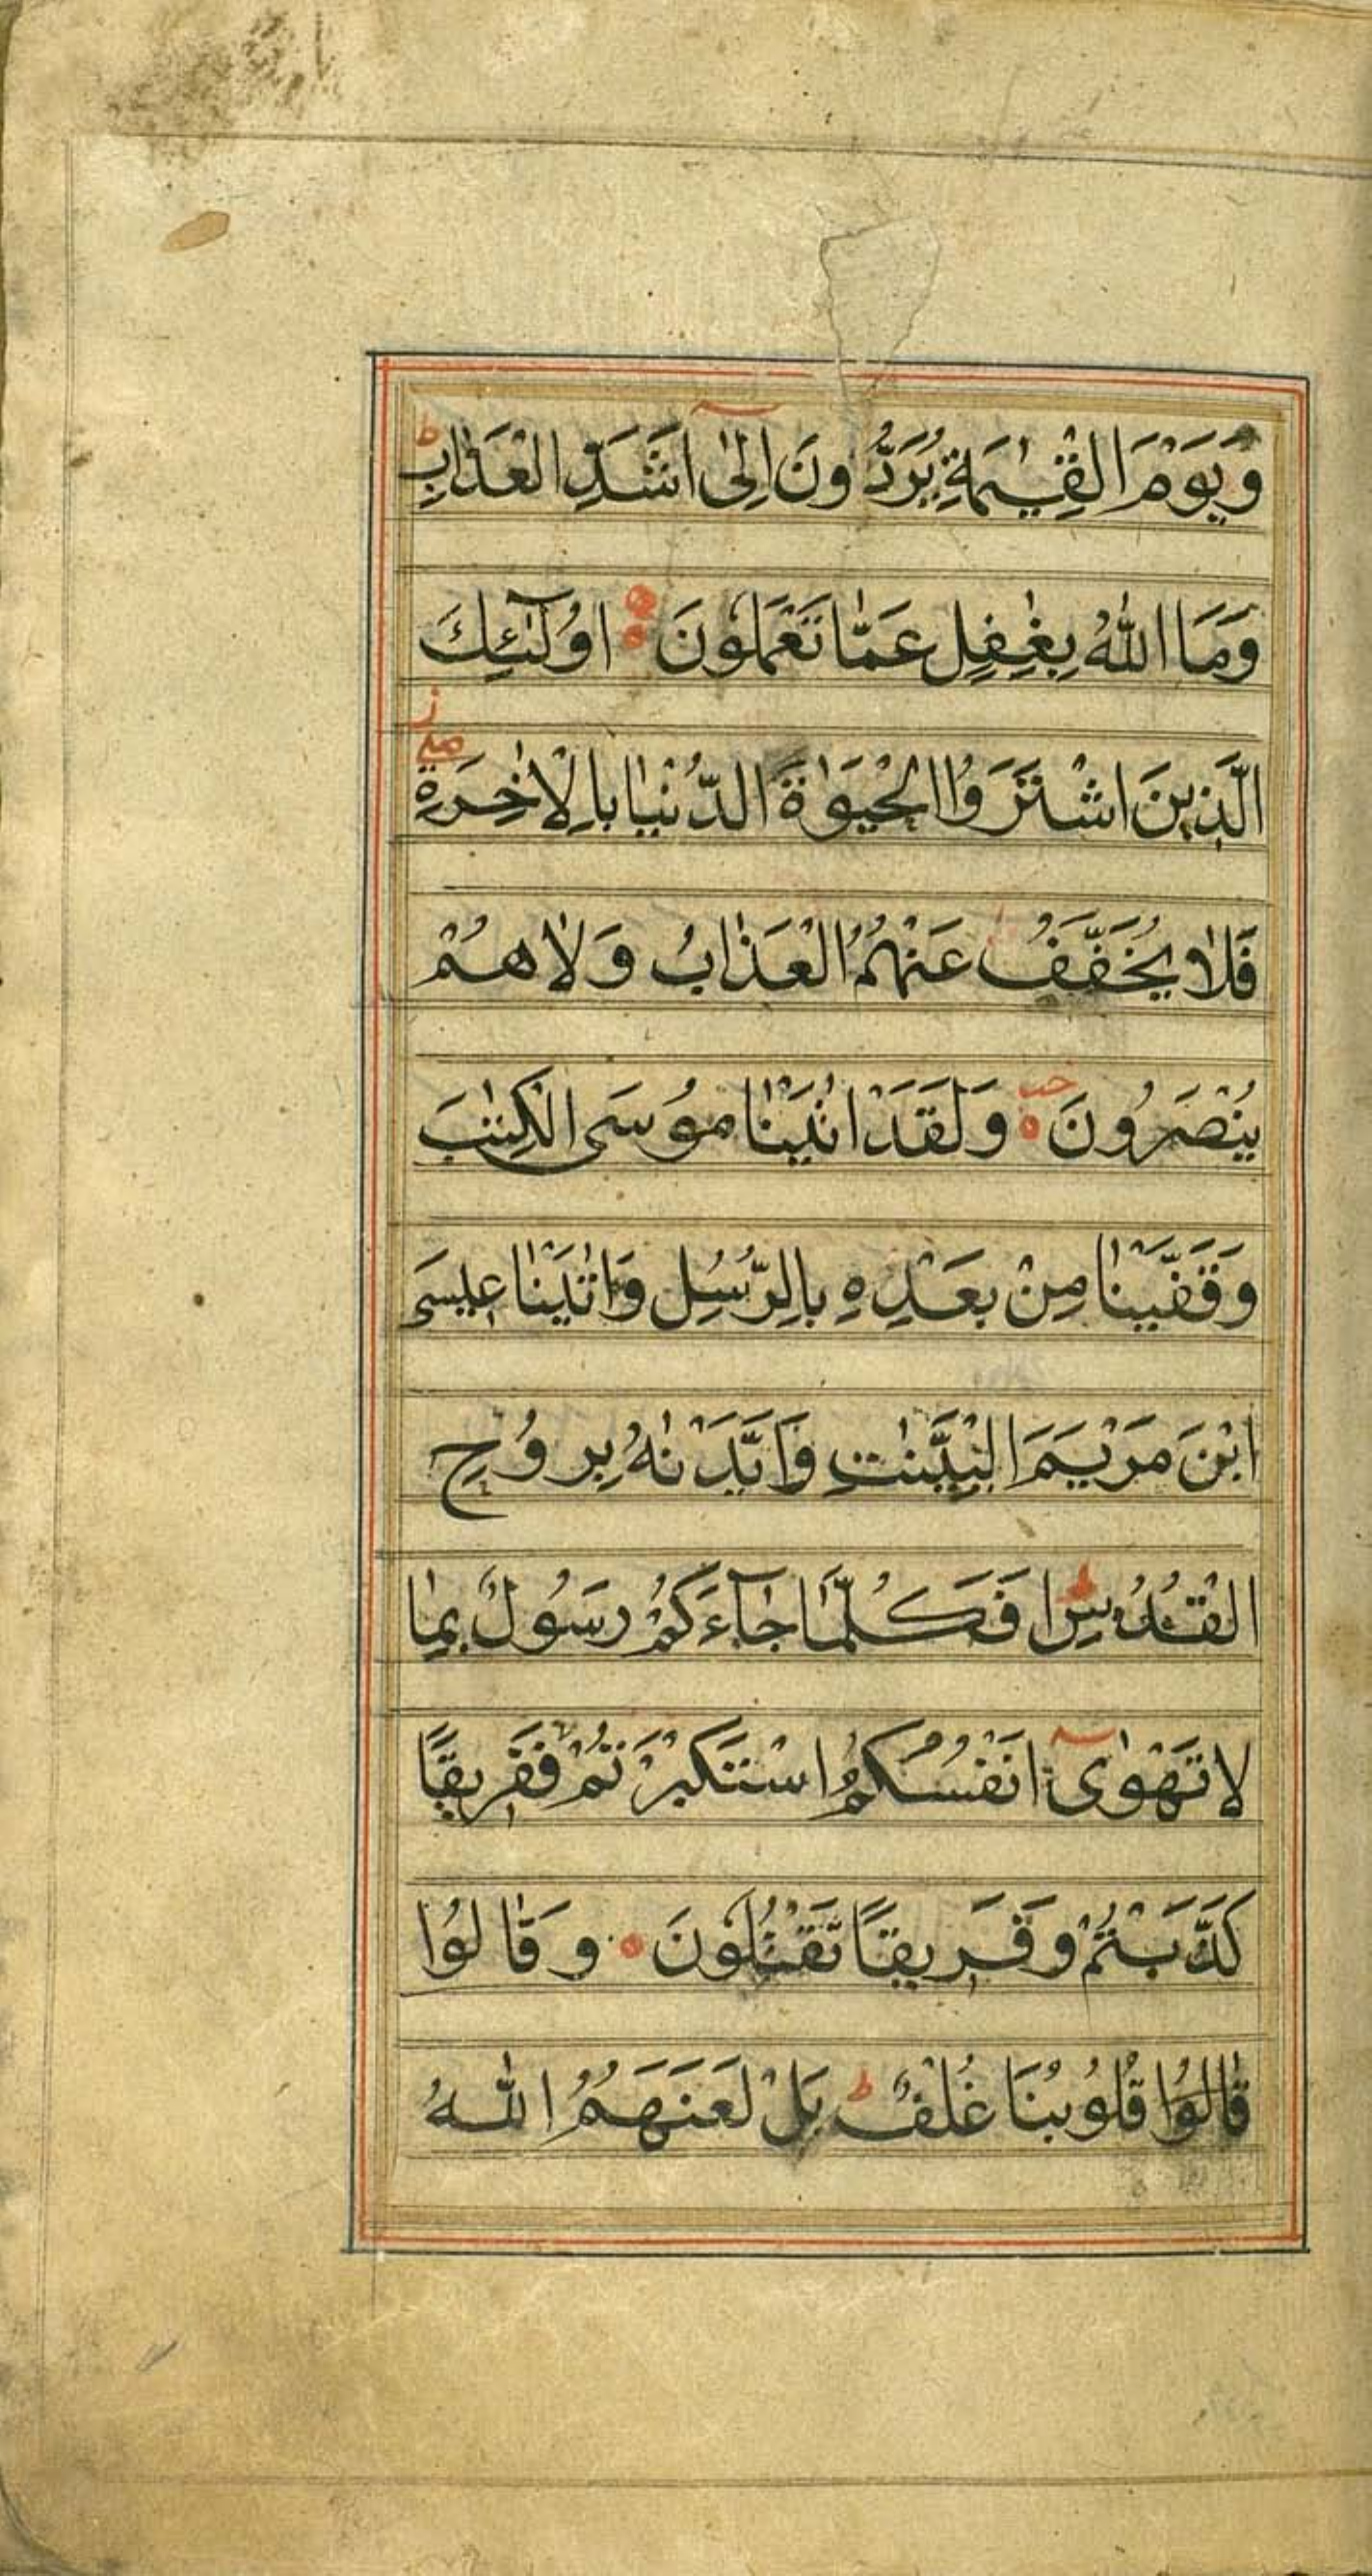 وَيَوْمَ الْقِيٰمَةِ يُرَدُّونَ اِلٰٓى اَشَدِّ الْعَذٰابِ ط
وَمَا اللّٰهُ بِغٰفِلٍ عَمّٰا تَعْمَلُونَ ه اُولٰٓئِكَ
الَّذِينَ اشْتَرَوُا الْحَيَوٰةَ الدُّنْيٰا بِالْاٰخِرَةِ ز صلى
فَلٰا يُخَفَّفُ عَنْهُمُ الْعَذٰابُ وَلٰا هُمْ
يُنْصَرُونَ ه وَلَقَدْ اٰتَيْنٰا مُوسَى الْكِتٰبَ
وَقَفَّيْنٰا مِنْ بَعْدِهِ بِالرُّسُلِ وَاٰتَيْنٰا عِيسَى
ابْنَ مَرْيَمَ الْبَيِّنٰتِ وَاَيَّدْنٰهُ بِرُوحِ
الْقُدُسِ ط اَفَكُلَّمٰا جٰآءَكُمْ رَسُولٌ بِمٰا
لٰا تَهْوٰٓى اَنْفُسُكُمُ اسْتَكْبَرْتُمْ فَفَرِيقًا
كَذَّبْتُمْ وَفَرِيقًا تَقْتُلُونَ ه وَقٰالُوا
قٰالُوا قُلُوبُنَا غُلْفٌ ط بَلْ لَعَنَهُمُ اللّٰهُ